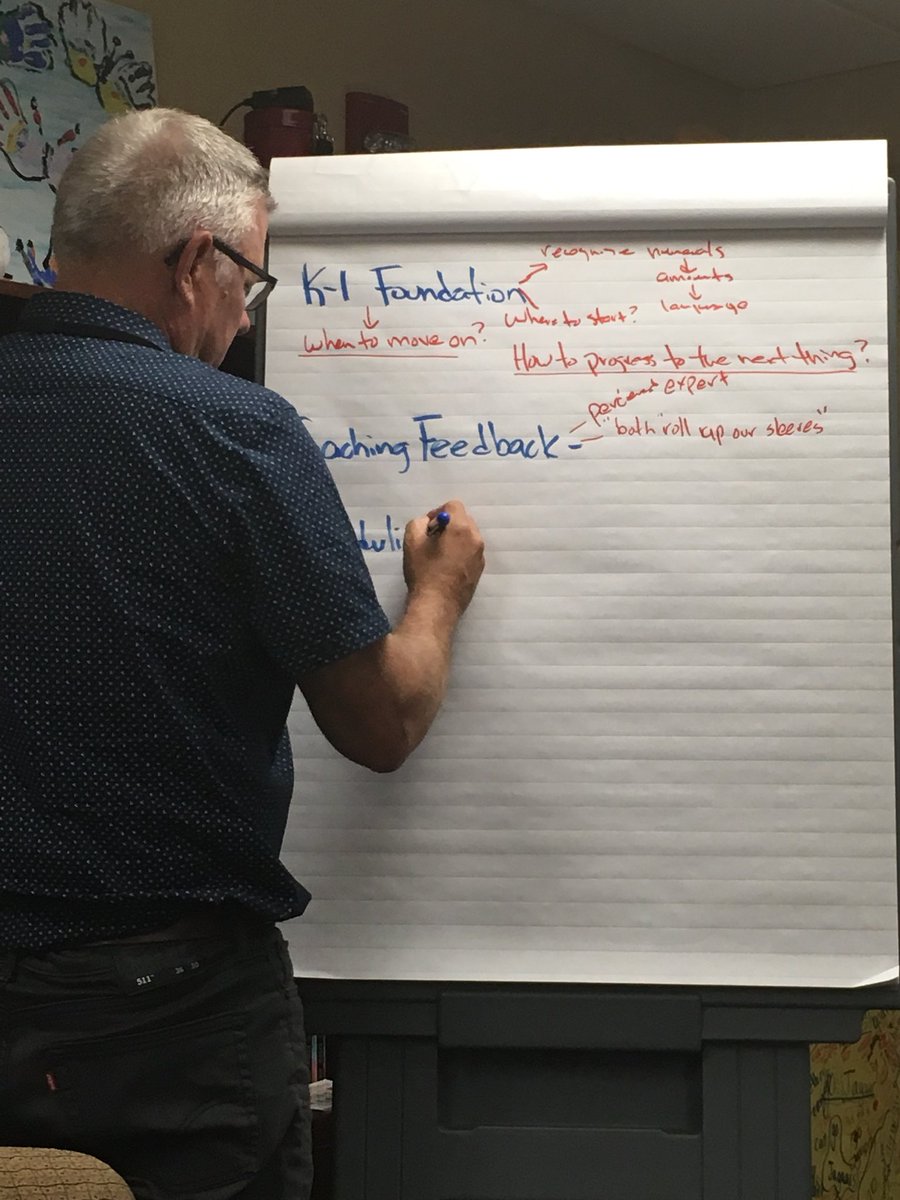 recognize numerals
↓
amounts
↓
language
K-1 Foundation
↓
Where to start?
when to move on?
How to progress to the next thing?
expert
aching Feedback -
"both "roll up our sleeves"
duli
511™ 30 30